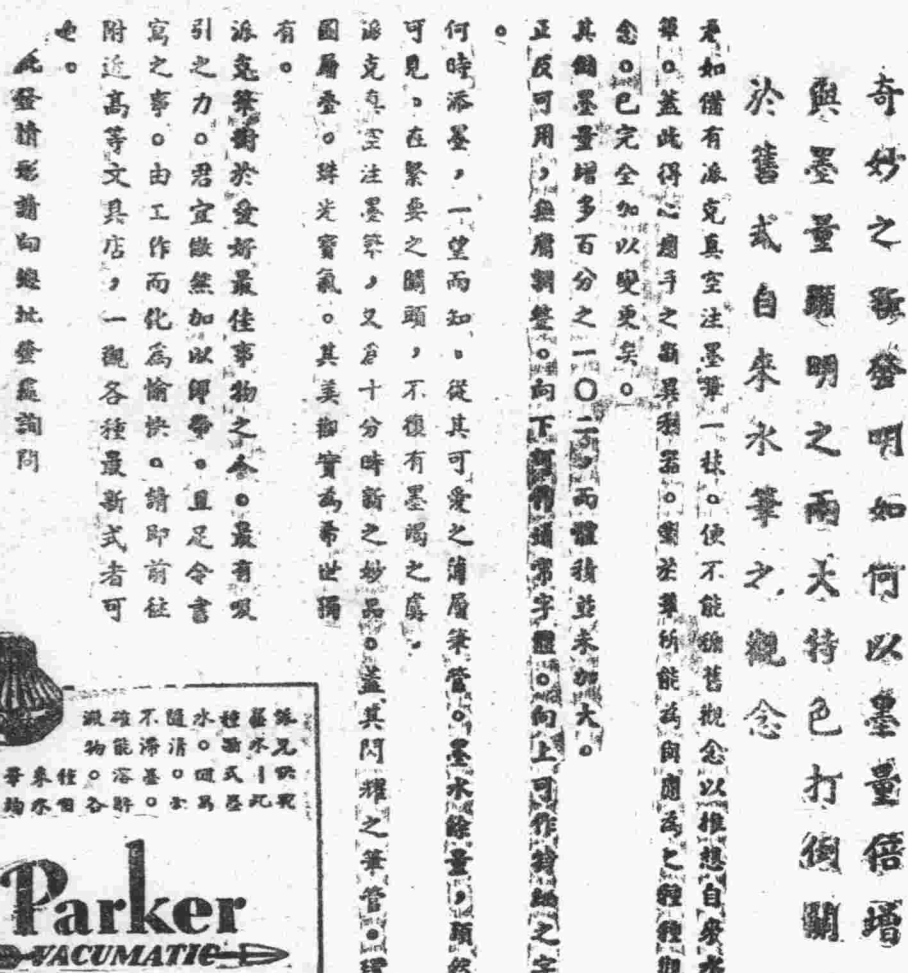 奇妙之新發明如何以墨量倍增
與墨量顯明之兩大特色打倒關
於舊式自來水筆之觀念
君如備有派克真空注墨筆一枝。便不能循舊觀念以推想自來水
筆。蓋此得心應手之新異利器。對於筆所能為與應為之種種觀
念。已完全加以變更矣。
其儲墨量增多百分之一〇二，而體積並未加大。
正反可用，無庸調整。向下寫作通常字體。向上可作特細之字
。
何時添墨，一望而知。從其可愛之薄層筆管。墨水餘量，顯然
可見。在緊要之關頭，不復有墨竭之虞。
派克真空注墨筆，又為十分時新之妙品。蓋其閃耀之筆管。環
圈層疊。珠光寶氣。其美觀實為希世獨
有。
派克筆對於愛好最佳事物之人。最有吸
引之力。君宜傲然加以佩帶。且足令書
寫之事。由工作而化為愉快。請即前往
附近高等文具店，一觀各種最新式者可
也。
批發情形請向總批發處詢問
水。隨寫
隨清。
不滯墨。
確能溶解
澱物。各
種自
來水
筆均
Parker
VACUMATIC